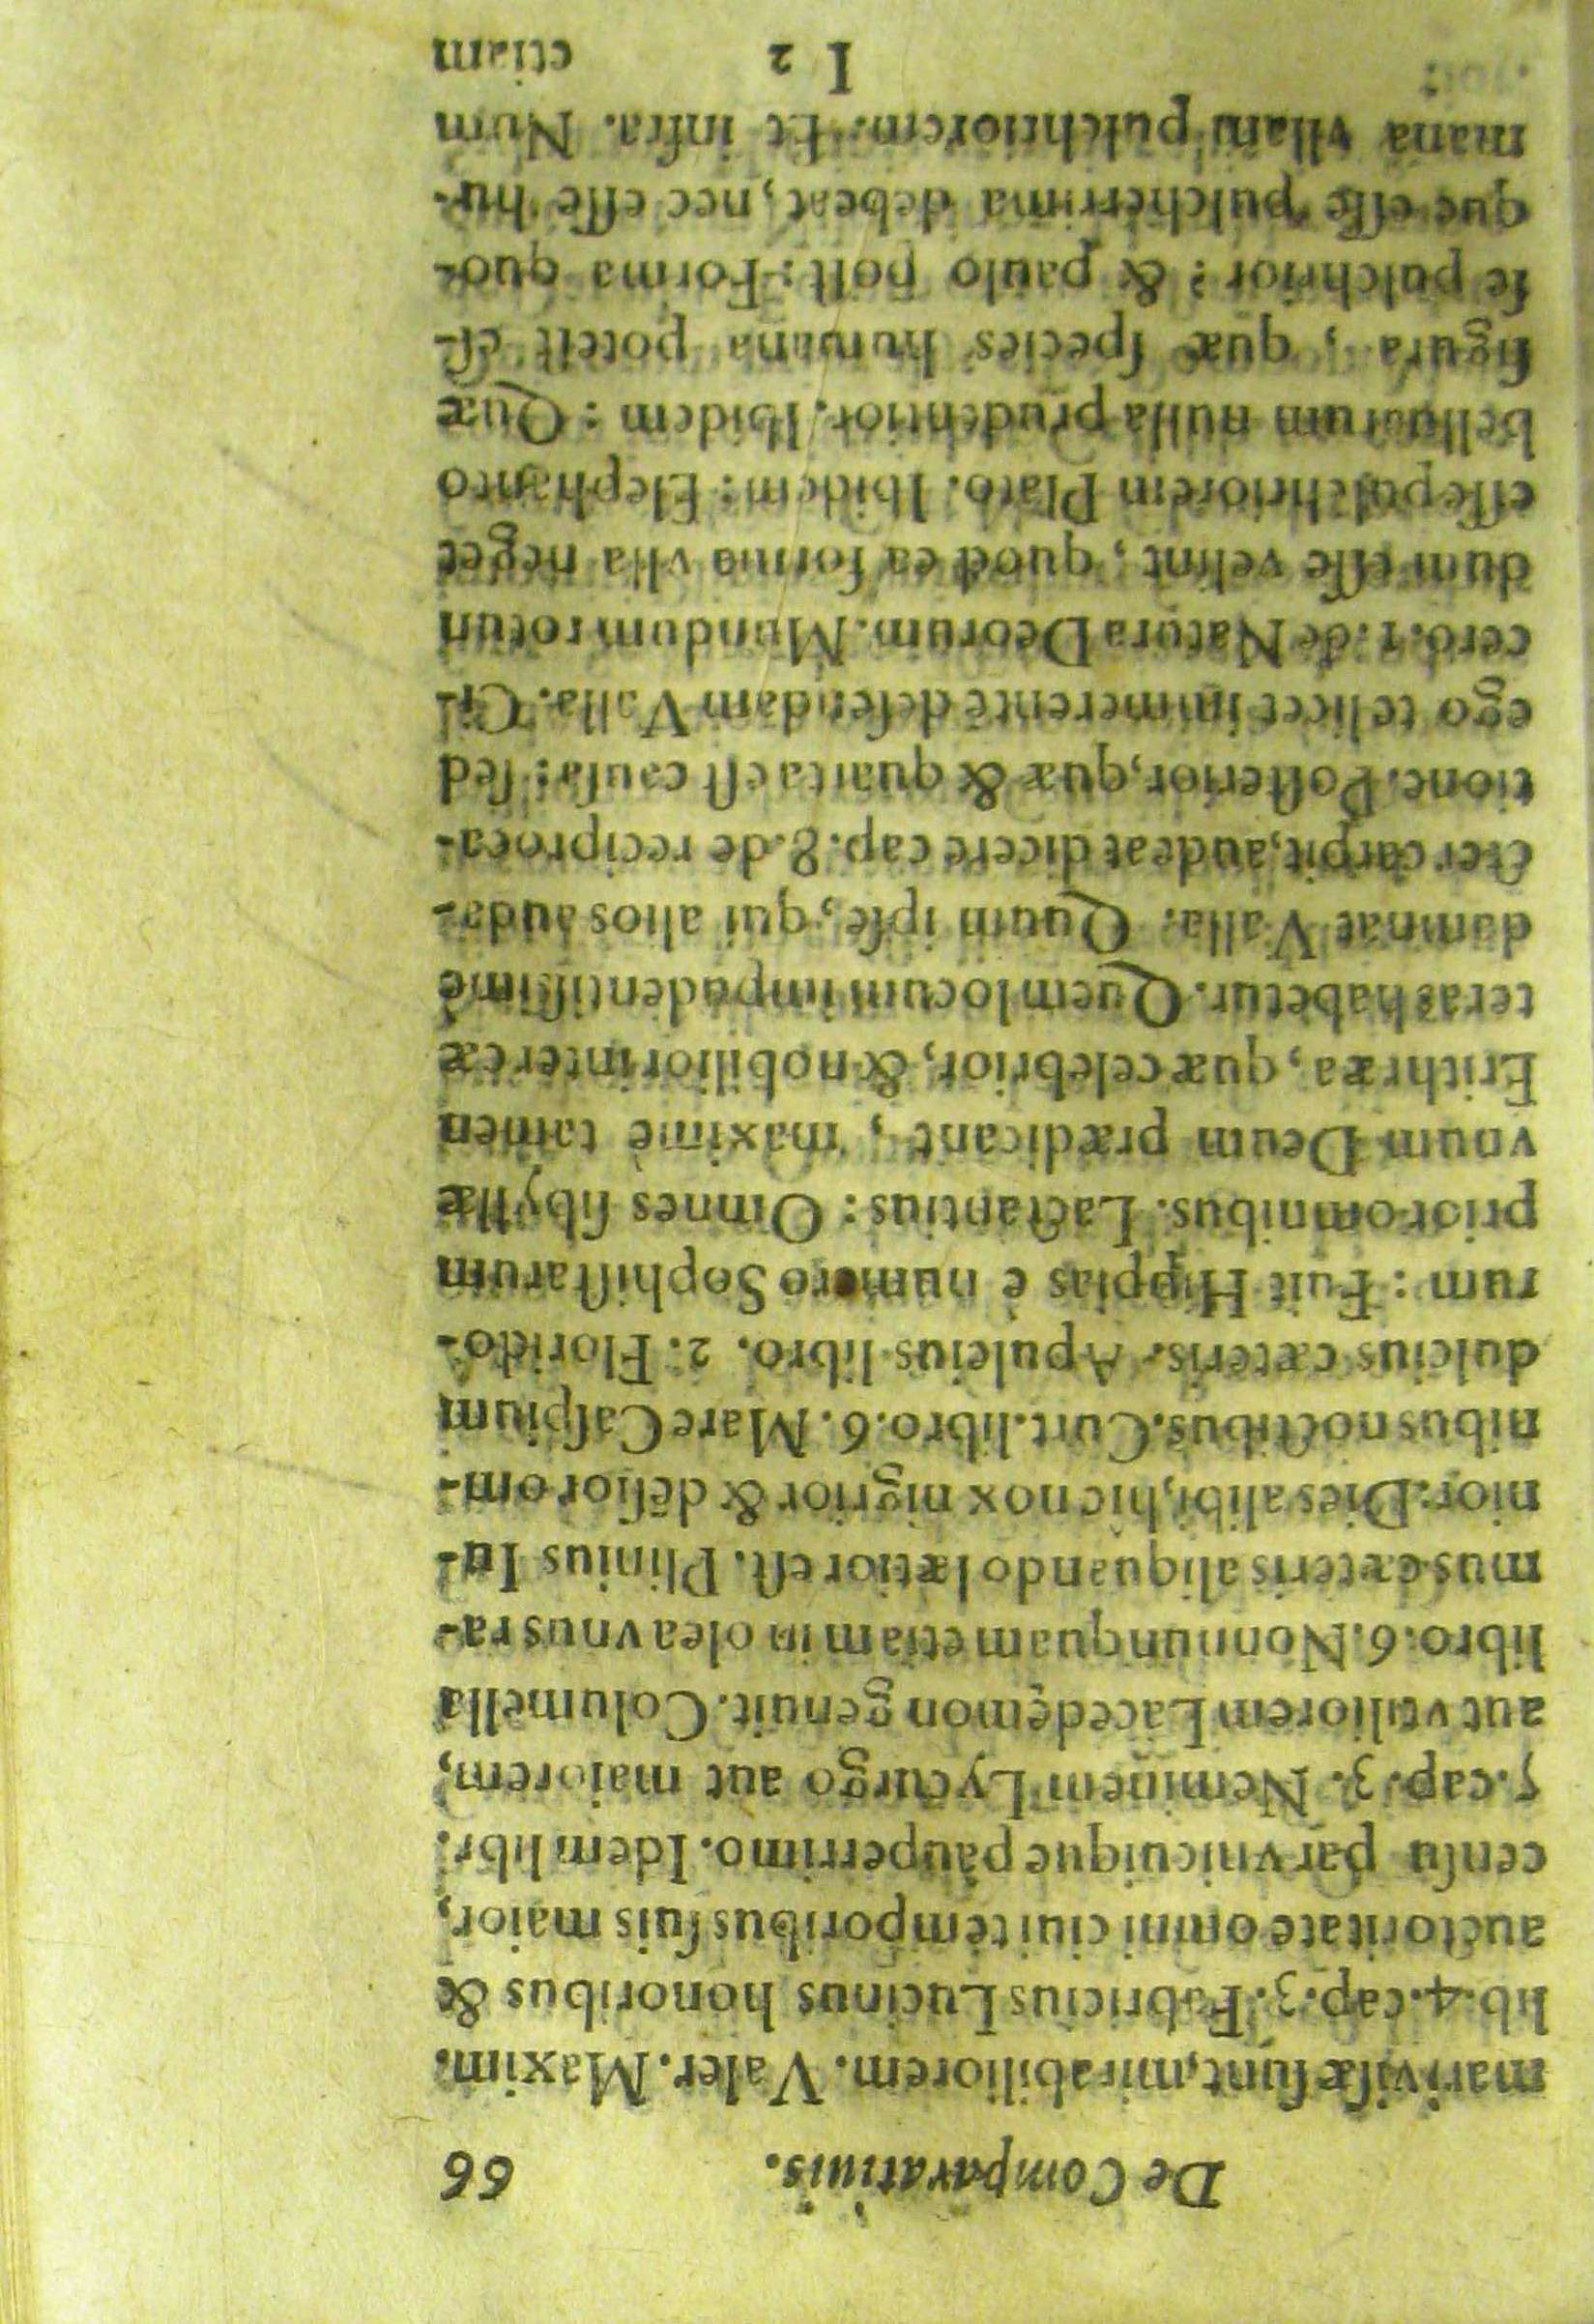 De Comparatiuis. 66
mari visæ sunt, mirabiliorem. Valer. Maxim.
lib. 4. cap. 3. Fabricius Lucinus honoribus &
auctoritate omni ciui temporibus suis maior,
censu par vnicuique pauperrimo. Idem libr.
5. cap. 3. Neminem Lycurgo aut maiorem,
aut vtiliorem Lacedęmon genuit. Columella
libro. 6. Nonnunquam etiam in olea vnus ra-
mus cæteris aliquando lætior est. Plinius Iu-
nior: Dies alibi, hic nox nigrior & dēsior om-
nibus noctibus. Curt. libro. 6. Mare Caspium
dulcius cæteris. Apuleius libro. 2. Florido-
rum: Fuit Hippias è numero Sophistarum
prior omnibus. Lactantius: Omnes sibyllæ
vnum Deum prædicant, maximè tamen
Erithræa, quæ celebrior, & nobilior inter cæ
teras habetur. Quem locum impudentissimè
damnat Valla. Quum ipse, qui alios auda-
cter carpit, audeat dicere cap. 8. de reciproca-
tione. Posterior, quæ & quarta est causa: sed
ego te licet immerentē defendam Valla. Ci-
cero. 1. de Natura Deorum. Mundum rotun
dum esse velint, quod ea forma vlla neget
esse pulchriorem Plato. Ibidem: Elephanto
belluarum nulla prudentior. Ibidem: Quæ
figura, quæ species humana potest es-
se pulchrior; & paulo post: Forma quo-
que esse pulcherrima debeat, nec esse hu-
mana vllam pulchriorem. Et infra. Num
I 2 etiam